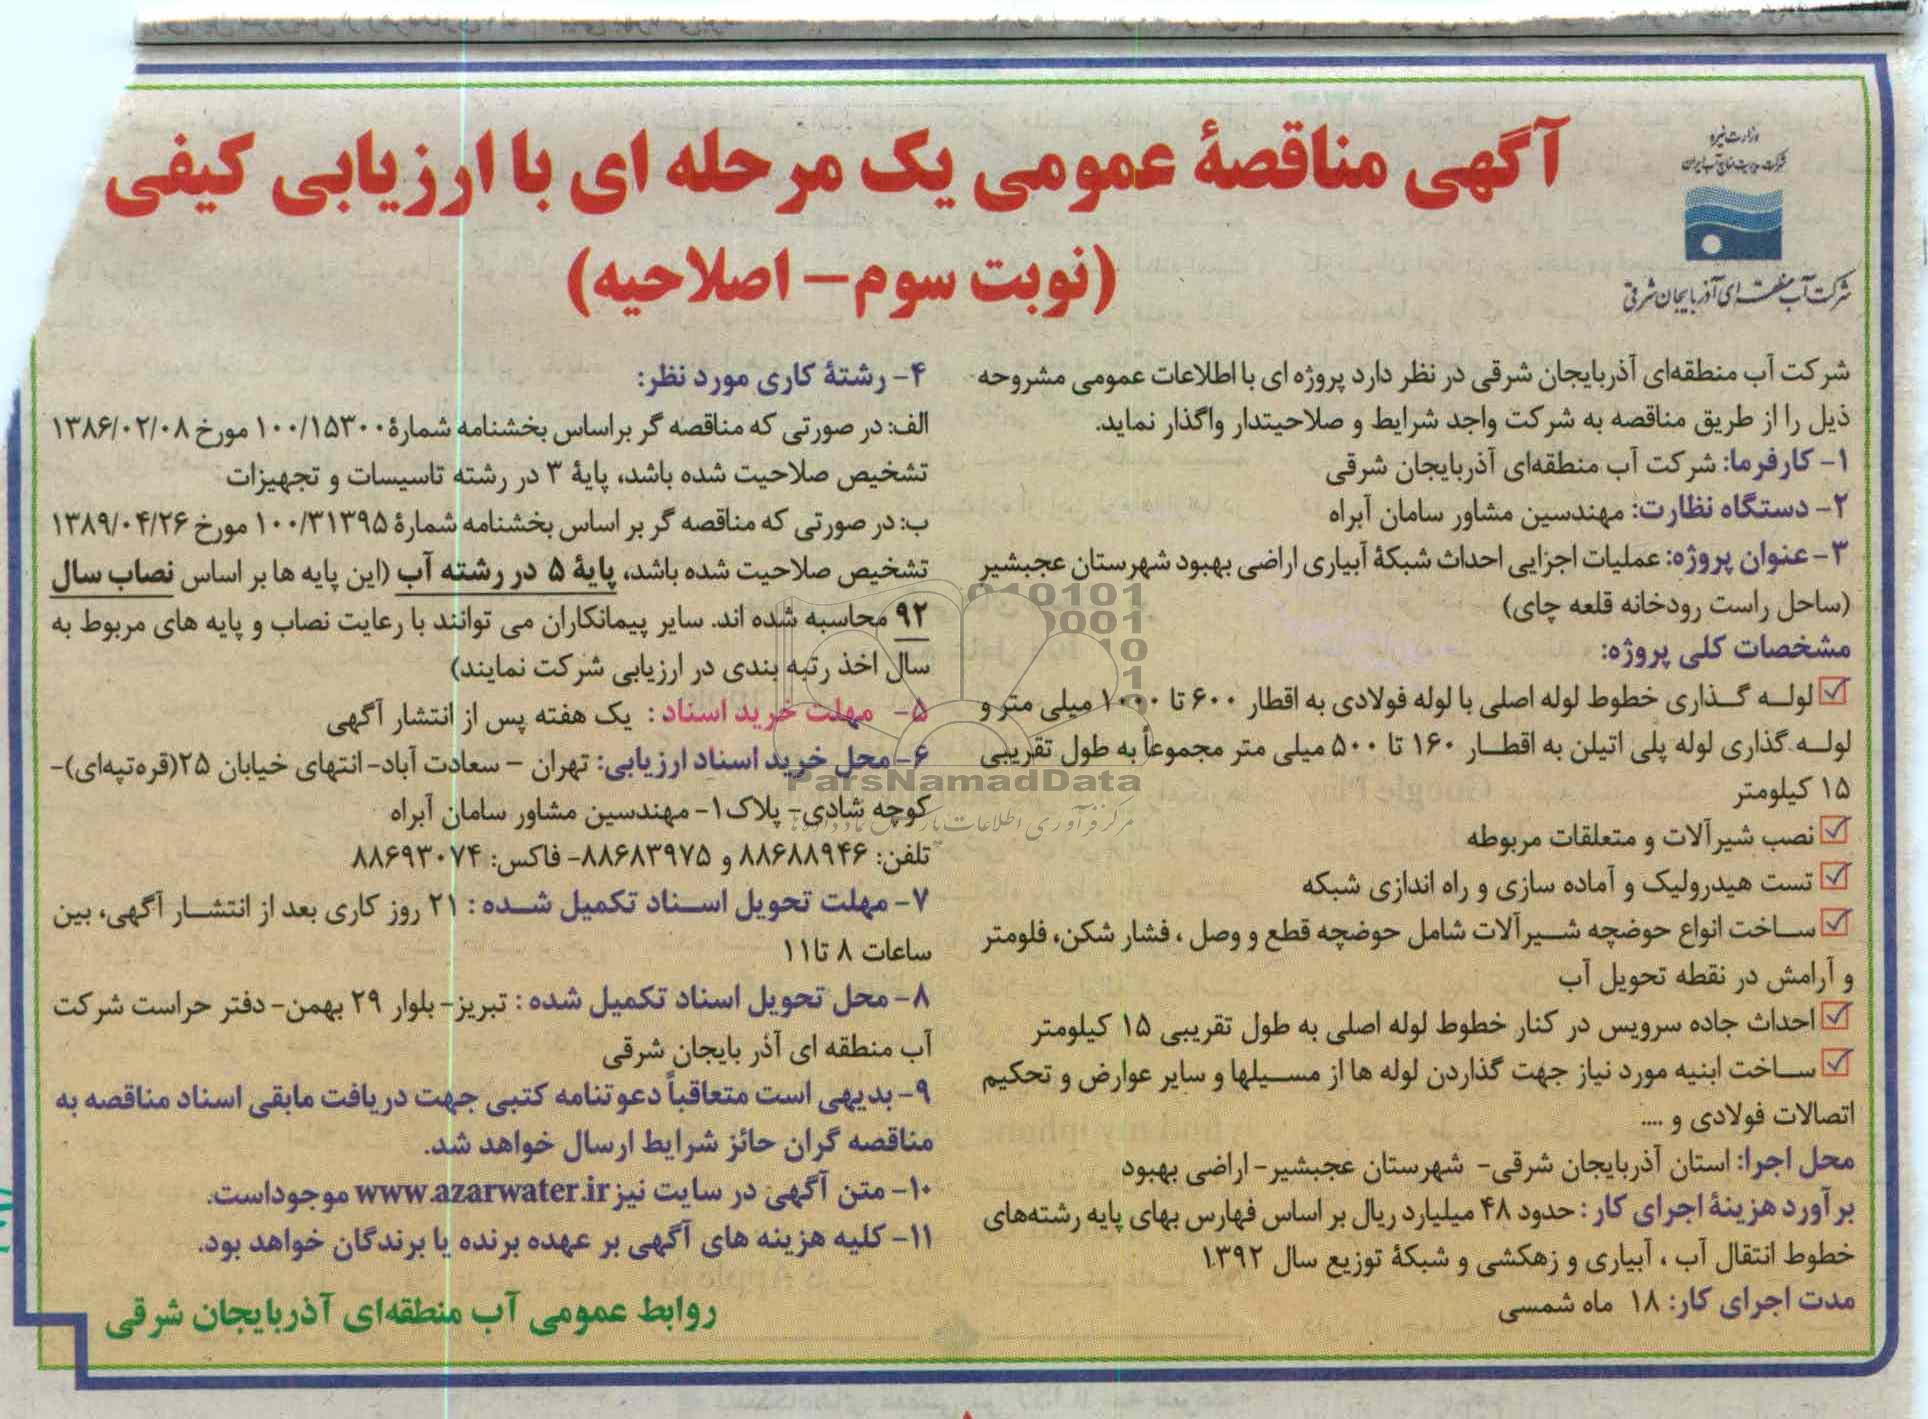 وزارت نیرو
شرکت مدیریت منابع آب ایران
شرکت آب منطقه ای آذربایجان شرقی
آگهی مناقصهٔ عمومی یک مرحله ای با ارزیابی کیفی
(نوبت سوم– اصلاحیه)
شرکت آب منطقه‌ای آذربایجان شرقی در نظر دارد پروژه ای با اطلاعات عمومی مشروحه
ذیل را از طریق مناقصه به شرکت واجد شرایط و صلاحیتدار واگذار نماید.
۱- کارفرما: شرکت آب منطقه‌ای آذربایجان شرقی
۲- دستگاه نظارت: مهندسین مشاور سامان آبراه
۳- عنوان پروژه: عملیات اجرایی احداث شبکهٔ آبیاری اراضی بهبود شهرستان عجبشیر
(ساحل راست رودخانه قلعه چای)
مشخصات کلی پروژه:
لوله گذاری خطوط لوله اصلی با لوله فولادی به اقطار ۶۰۰ تا ۱۰۰۰ میلی متر و
لوله گذاری لوله پلی اتیلن به اقطار ۱۶۰ تا ۵۰۰ میلی متر مجموعاً به طول تقریبی
۱۵ کیلومتر
نصب شیرآلات و متعلقات مربوطه
تست هیدرولیک و آماده سازی و راه اندازی شبکه
ساخت انواع حوضچه شیرآلات شامل حوضچه قطع و وصل ، فشار شکن، فلومتر
و آرامش در نقطه تحویل آب
احداث جاده سرویس در کنار خطوط لوله اصلی به طول تقریبی ۱۵ کیلومتر
ساخت ابنیه مورد نیاز جهت گذاردن لوله ها از مسیلها و سایر عوارض و تحکیم
اتصالات فولادی و ....
محل اجرا: استان آذربایجان شرقی- شهرستان عجبشیر- اراضی بهبود
برآورد هزینهٔ اجرای کار : حدود ۴۸ میلیارد ریال بر اساس فهارس بهای پایه رشته‌های
خطوط انتقال آب ، آبیاری و زهکشی و شبکهٔ توزیع سال ۱۳۹۲
مدت اجرای کار: ۱۸ ماه شمسی
۴- رشتهٔ کاری مورد نظر:
الف: در صورتی که مناقصه گر براساس بخشنامه شمارهٔ ۱۰۰/۱۵۳۰۰ مورخ ۱۳۸۶/۰۲/۰۸
تشخیص صلاحیت شده باشد، پایهٔ ۳ در رشته تاسیسات و تجهیزات
ب: در صورتی که مناقصه گر بر اساس بخشنامه شمارهٔ ۱۰۰/۳۱۳۹۵ مورخ ۱۳۸۹/۰۴/۲۶
تشخیص صلاحیت شده باشد، پایهٔ ۵ در رشته آب (این پایه ها بر اساس نصاب سال
۹۲ محاسبه شده اند. سایر پیمانکاران می توانند با رعایت نصاب و پایه های مربوط به
سال اخذ رتبه بندی در ارزیابی شرکت نمایند)
۵- مهلت خرید اسناد : یک هفته پس از انتشار آگهی
۶-محل خرید اسناد ارزیابی: تهران – سعادت آباد- انتهای خیابان ۲۵(قره‌تپه‌ای)-
کوچه شادی- پلاک۱- مهندسین مشاور سامان آبراه
تلفن: ۸۸۶۸۸۹۴۶ و ۸۸۶۸۳۹۷۵- فاکس: ۸۸۶۹۳۰۷۴
۷- مهلت تحویل اسناد تکمیل شده : ۲۱ روز کاری بعد از انتشار آگهی، بین
ساعات ۸ تا۱۱
۸- محل تحویل اسناد تکمیل شده : تبریز- بلوار ۲۹ بهمن- دفتر حراست شرکت
آب منطقه ای آذر بایجان شرقی
۹- بدیهی است متعاقباً دعوتنامه کتبی جهت دریافت مابقی اسناد مناقصه به
مناقصه گران حائز شرایط ارسال خواهد شد.
۱۰- متن آگهی در سایت نیز www.azarwater.ir موجوداست.
۱۱- کلیه هزینه های آگهی بر عهده برنده یا برندگان خواهد بود.
روابط عمومی آب منطقه‌ای آذربایجان شرقی
ParsNamadData